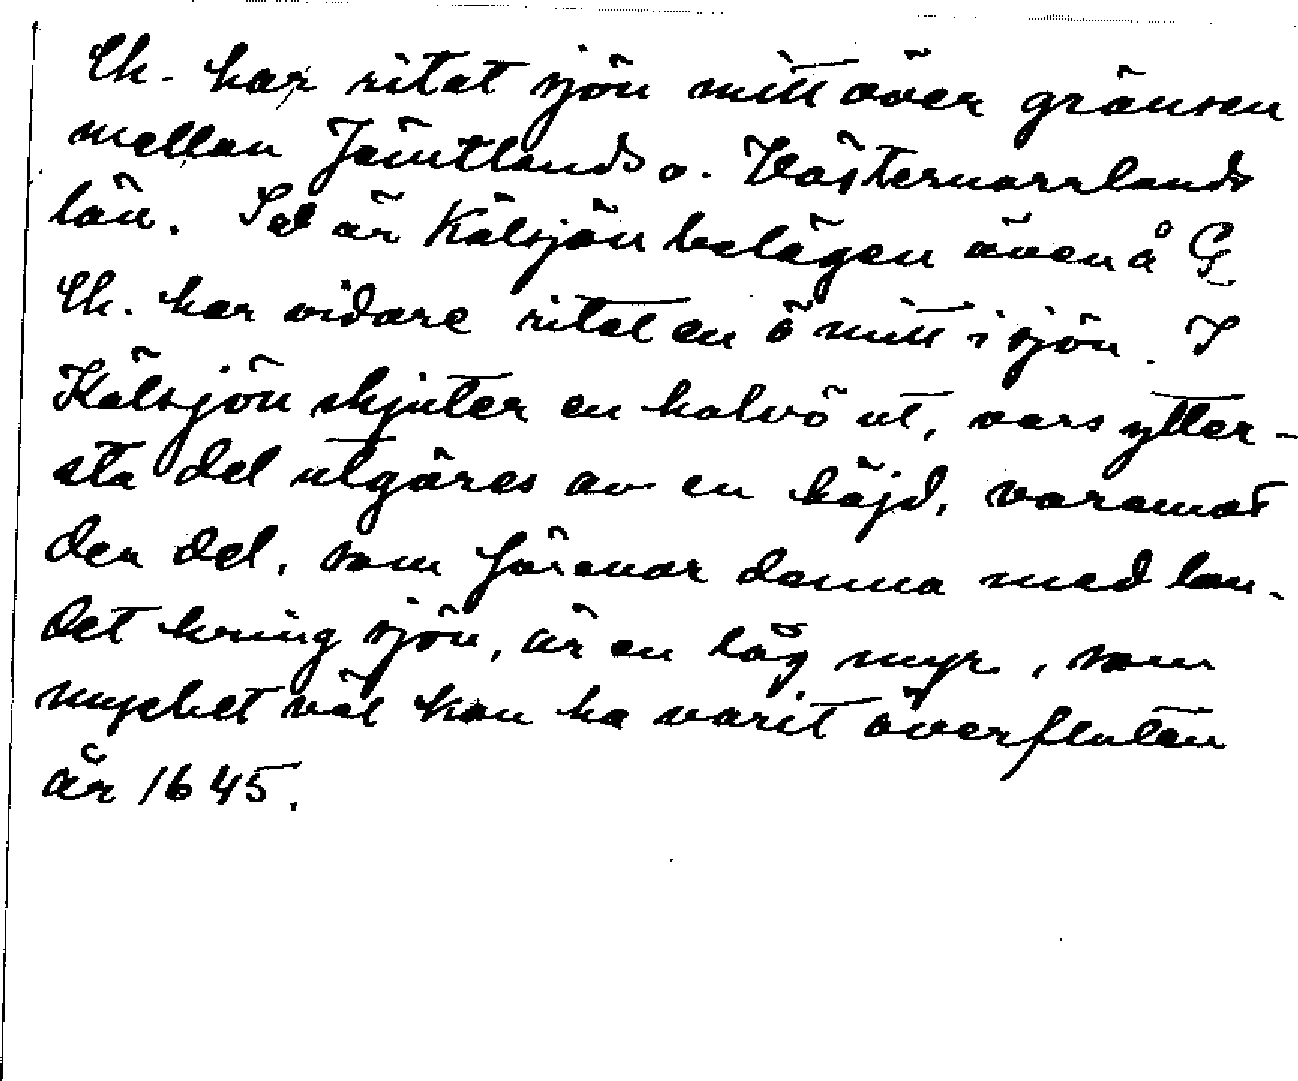 Ch. har ritat sjön mitt över gränsen
mellan Jämtlands o. Västernorrlands
län. Så är Kälsjön belägen även å G
Ch. har vidare ritat en ö mitt i sjön. I
Kälsjön skjuter en halvö ut, vars ytter-
sta del utgöres av en höjd, varemot
den del, som förenar denna med lan-
det kring sjön, är en låg myr, som
mycket väl kan ha varit överfluten
år 1645.